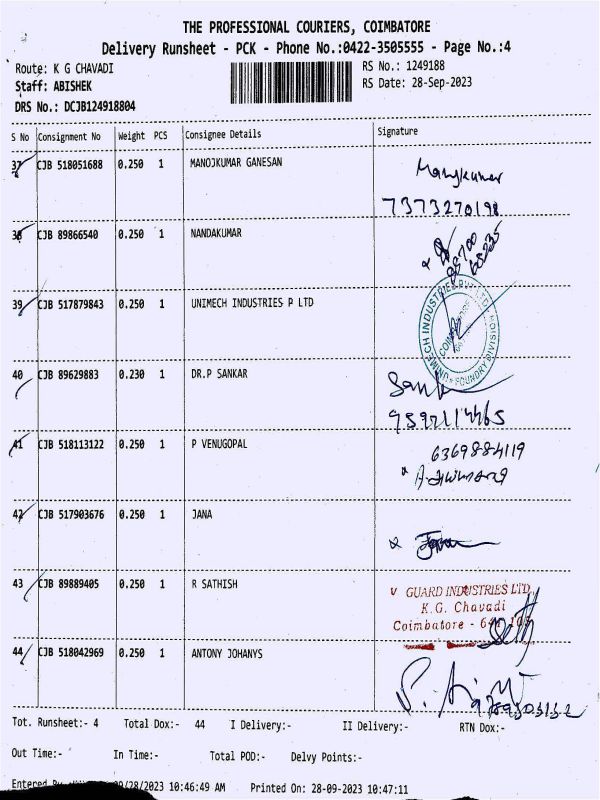 THE PROFESSIONAL COURIERS, COIMBATORE
Delivery Runsheet - PCK - Phone No.:0422-3505555 - Page No.:4
Route: K G CHAVADI
RS No.: 1249188
Staff: ABISHEK
RS Date: 28-Sep-2023
DRS No.: DCJB124918804
S No Consignment No Weight PCS Consignee Details Signature
37 CJB 518051688 0.250 1 MANOJKUMAR GANESAN
7373270198
38 CJB 89866540 0.250 1 NANDAKUMAR
39 CJB 517879843 0.250 1 UNIMECH INDUSTRIES P LTD
UNIMECH INDUSTRIES PVT LTD
FOUNDRY DIVISION
40 CJB 89629883 0.230 1 DR.P SANKAR
41 CJB 518113122 0.250 1 P VENUGOPAL
6369884119
42 CJB 517903676 0.250 1 JANA
43 CJB 89889405 0.250 1 R SATHISH
GUARD INDUSTRIES LTD.
K.G. Chavadi
Coimbatore - 641 105
44 CJB 518042969 0.250 1 ANTONY JOHANYS
Tot. Runsheet:- 4 Total Dox:- 44 I Delivery:- II Delivery:- RTN Dox:-
Out Time:- In Time:- Total POD:- Delvy Points:-
Entered By 09/28/2023 10:46:49 AM Printed On: 28-09-2023 10:47:11